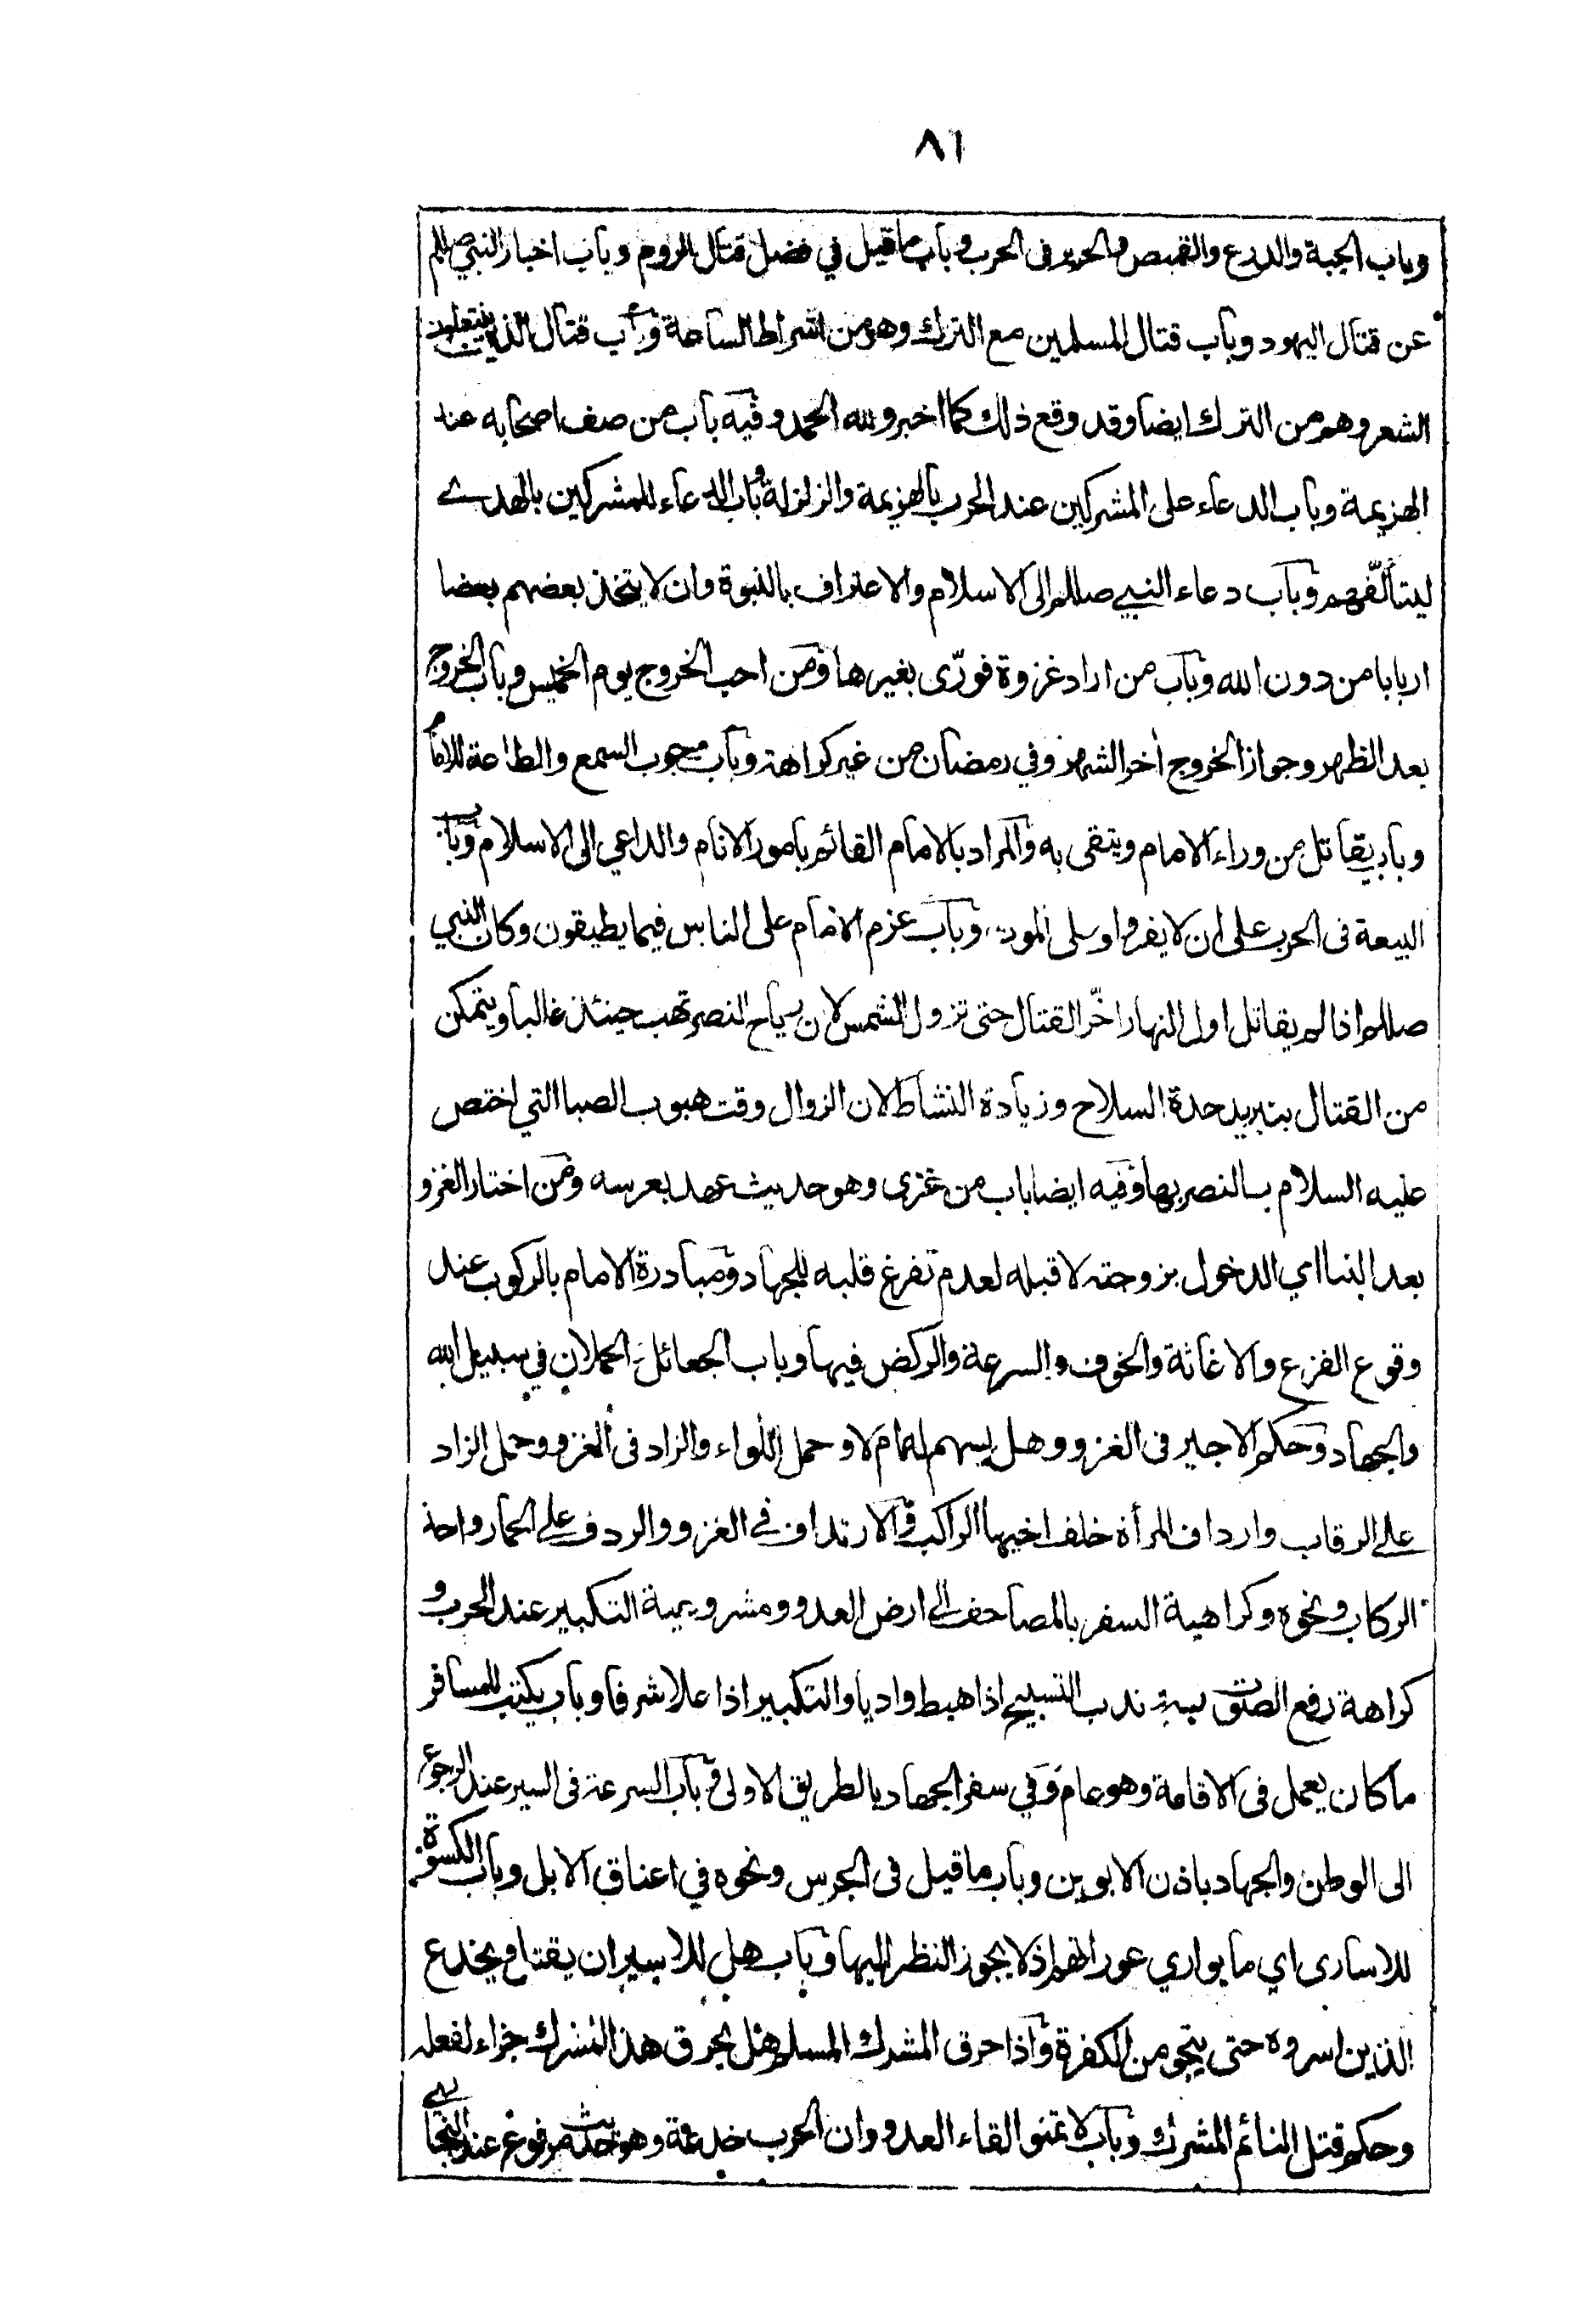 ٨١
وباب الجبة والدرع والقميص والحرير فى الحرب وباب ما قيل في فضل قتال الروم وباب اخبار النبي صللم
عن قتال اليهود وباب قتال المسلمين مع الترك وهو من اشراط الساعة وباب قتال الذين ينتعلون
الشعر وهم من الترك ايضا وقد وقع ذلك كما اخبر ولله الحمد وفيه باب من صف اصحابه عند
الهزيمة وباب الدعاء على المشركين عند الحرب بالهزيمة والزلزلة وباب الدعاء للمشركين بالهدى
ليتألّفهم وباب دعاء النبي صللم الى الاسلام والاعتراف بالنبوة وان لا يتخذ بعضهم بعضا
اربابا من دون الله وباب من اراد غزوة فورّى بغيرها ومن احب الخروج يوم الخميس وباب الخروج
بعد الظهر وجواز الخروج أخر الشهر وفي رمضان من غير كراهة وباب وجوب السمع والطاعة للامام
وباب يقاتل من وراء الامام ويتقى به والمراد بالامام القائم بامور الانام والداعي الى الاسلام وباب
البيعة فى الحرب على ان لا يفروا وعلى الموت وباب عزم الامام على الناس فيما يطيقون وكان النبي
صللم اذا لم يقاتل اول النهار اخّر القتال حتى تزول الشمس لان رياح النصر تهب حينئذ غالبا ويتمكن
من القتال بتبريد حدة السلاح وزيادة النشاط لان الزوال وقت هبوب الصبا التي اختص
عليه السلام بالنصر بها وفيه ايضا باب من غزى وهو حديث عهد بعرسه ومن اختار الغزو
بعد البنا اي الدخول بزوجته لا قبله لعدم تفرغ قلبه للجهاد ومبادرة الامام بالركوب عند
وقوع الفزع والاغاثة والخوف والسرعة والركض فيها وباب الجعائل والحملان في سبيل الله
والجهاد وحكم الاجير فى الغزو وهل يسهم له ام لا وحمل اللواء والزاد فى الغزو وحمل الزاد
على الرقاب وارداف المرأة خلف اخيها الراكب والارتداف في الغزو والردف على الحمار واخذ
الركاب ونحوه وكراهية السفر بالمصاحف الى ارض العدو ومشروعية التكبير عند الحرب و
كراهة رفع الصوت به وندب التسبيح اذا هبط واديا والتكبير اذا علا شرفا وباب يكتب للمسافر
ما كان يعمل فى الاقامة وهو عام وفي سفر الجهاد بالطريق الاولى وباب السرعة فى السير عند الرجوع
الى الوطن والجهاد باذن الابوين وباب ما قيل فى الجرس ونحوه في اعناق الابل وباب الكسوة
للاسارى اي ما يواري عوراتهم اذ لا يجوز النظر اليها وباب هل للاسير ان يقتل او يخدع
الذين اسروه حتى ينجو من الكفرة واذا حرق المشرك المسلم هل يحرق هذا المشرك جزاء لفعله
وحكم قتل النائم المشرك وباب لا تتمنوا لقاء العدو وان الحرب خدعة وهو حديث مرفوع عند البخاري